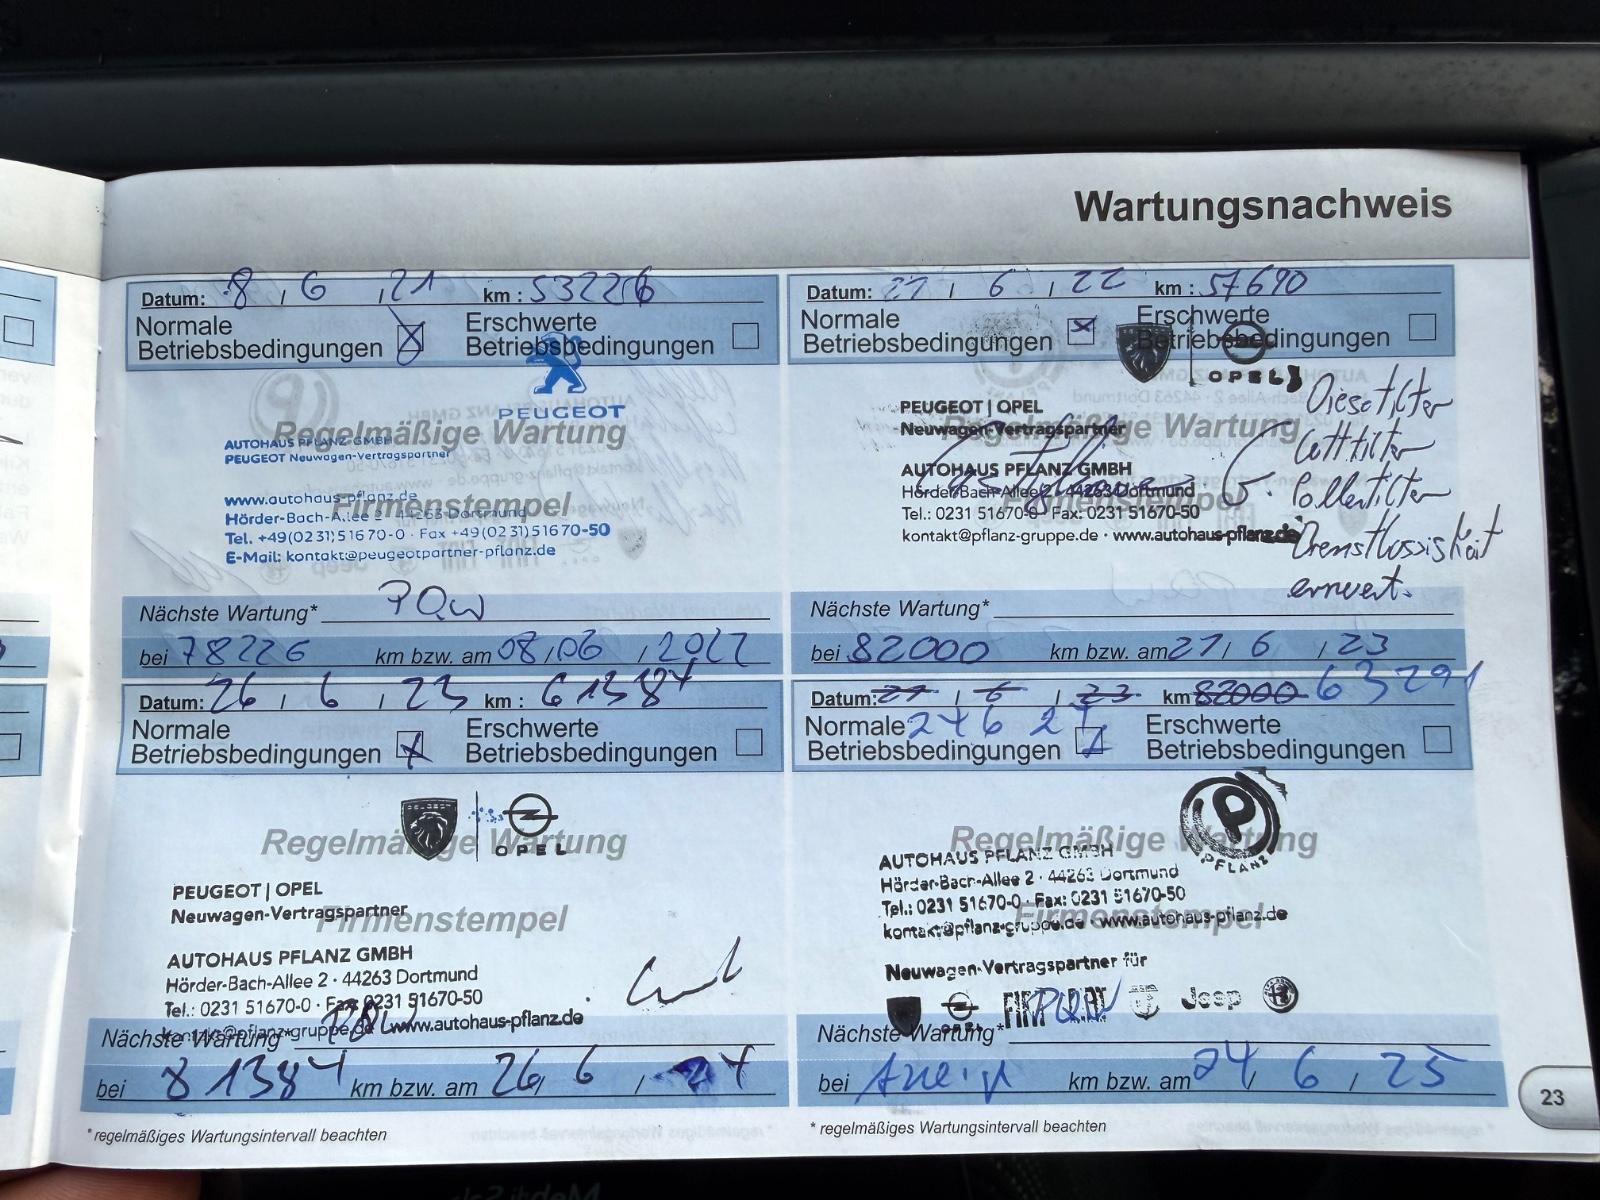 Wartungsnachweis
Datum: 8 / 6 / 21 km : 53226
Normale
Betriebsbedingungen
Erschwerte
Betriebsbedingungen
PEUGEOT
Regelmäßige Wartung
AUTOHAUS PFLANZ GMBH
PEUGEOT Neuwagen-Vertragspartner
Firmenstempel
www.autohaus-pflanz.de
Hörder-Bach-Allee 2 · 44263 Dortmund
Tel. +49(0231)51670-0 · Fax +49(0231)51670-50
E-Mail: kontakt@peugeotpartner-pflanz.de
Nächste Wartung*
bei 78226 km bzw. am 08/06/2022
Datum: 21 / 6 / 22 km : 57690
Normale
Betriebsbedingungen
Erschwerte
Betriebsbedingungen
OPEL
PEUGEOT | OPEL
Neuwagen-Vertragspartner
Regelmäßige Wartung
AUTOHAUS PFLANZ GMBH
Hörder-Bach-Allee 2 · 44263 Dortmund
Firmenstempel
Tel.: 0231 51670-0 · Fax: 0231 51670-50
kontakt@pflanz-gruppe.de · www.autohaus-pflanz.de
Luftfilter
Pollenfilter
Bremsflüssigkeit
erneuert.
Nächste Wartung*
bei 82000 km bzw. am 21 / 6 / 23
Datum: 26 / 6 / 23 km : 61384
Normale
Betriebsbedingungen
Erschwerte
Betriebsbedingungen
OPEL
Regelmäßige Wartung
PEUGEOT | OPEL
Neuwagen-Vertragspartner
Firmenstempel
AUTOHAUS PFLANZ GMBH
Hörder-Bach-Allee 2 · 44263 Dortmund
Tel.: 0231 51670-0 · Fax: 0231 51670-50
kontakt@pflanz-gruppe.de · www.autohaus-pflanz.de
Nächste Wartung*
bei 81384 km bzw. am 26 / 6 / 24
* regelmäßiges Wartungsintervall beachten
Datum: 21 / 6 / 23 km 82000 63291
Normale 24 6 24
Betriebsbedingungen
Erschwerte
Betriebsbedingungen
P
PFLANZ
Regelmäßige Wartung
AUTOHAUS PFLANZ GMBH
Hörder-Bach-Allee 2 · 44263 Dortmund
Tel.: 0231 51670-0 · Fax: 0231 51670-50
Firmenstempel
kontakt@pflanz-gruppe.de · www.autohaus-pflanz.de
Neuwagen-Vertragspartner für
OPEL FIAT Jeep
Nächste Wartung*
bei Anzeige km bzw. am 24 / 6 / 25
* regelmäßiges Wartungsintervall beachten
23